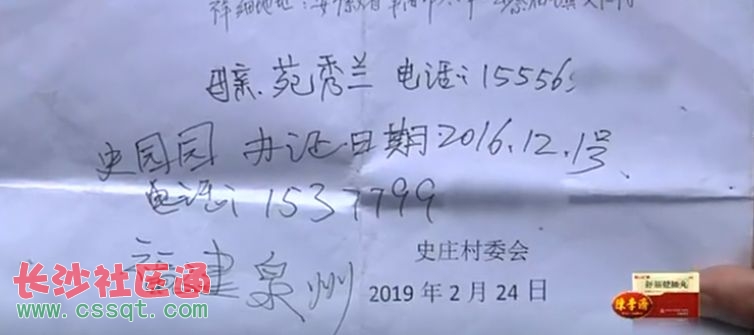 详细地址：安徽省阜南
母亲：苑秀兰 电话：15556
史园园 办证日期：2016.12.1号
电话：1537799
福建泉州
史庄村委会
2019年2月24日
长沙社区通
www.cssqt.com
陈李济
舒筋健腰丸